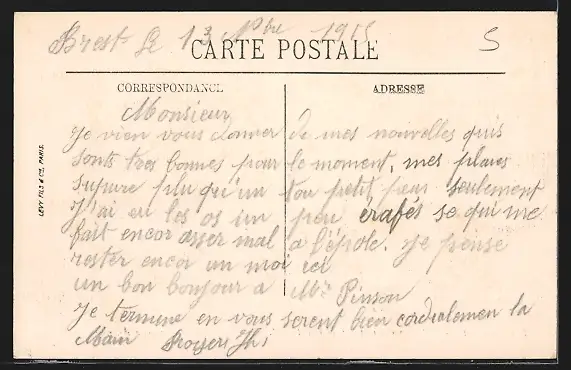 Brest le 13 9bre 1915
5
CARTE POSTALE
CORRESPONDANCE
ADRESSE
Monsieur
Je vien vous donner de mes nouvelles quis
sonts tres bonnes pour le moment, mes plaies
supure plu qu'un tou petit peur seulement
J'ai eu les os un peu érafés se qui me
fait encor asser mal a l'épole. Je pense
rester encor un moi ici
un bon bonjour a Mr Pinson
Je termine en vous serent bien cordialemen la
Main Royer Jh
LEVY FILS & Cie, PARIS.